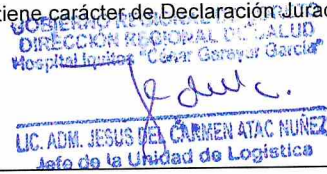 tiene carácter de Declaración Jurada
GOBIERNO REGIONAL DE
DIRECCIÓN REGIONAL DE SALUD
Hospital Iquitos "César Garayar García"
LIC. ADM. JESUS DEL CARMEN ATAC NUÑEZ
Jefe de la Unidad de Logística